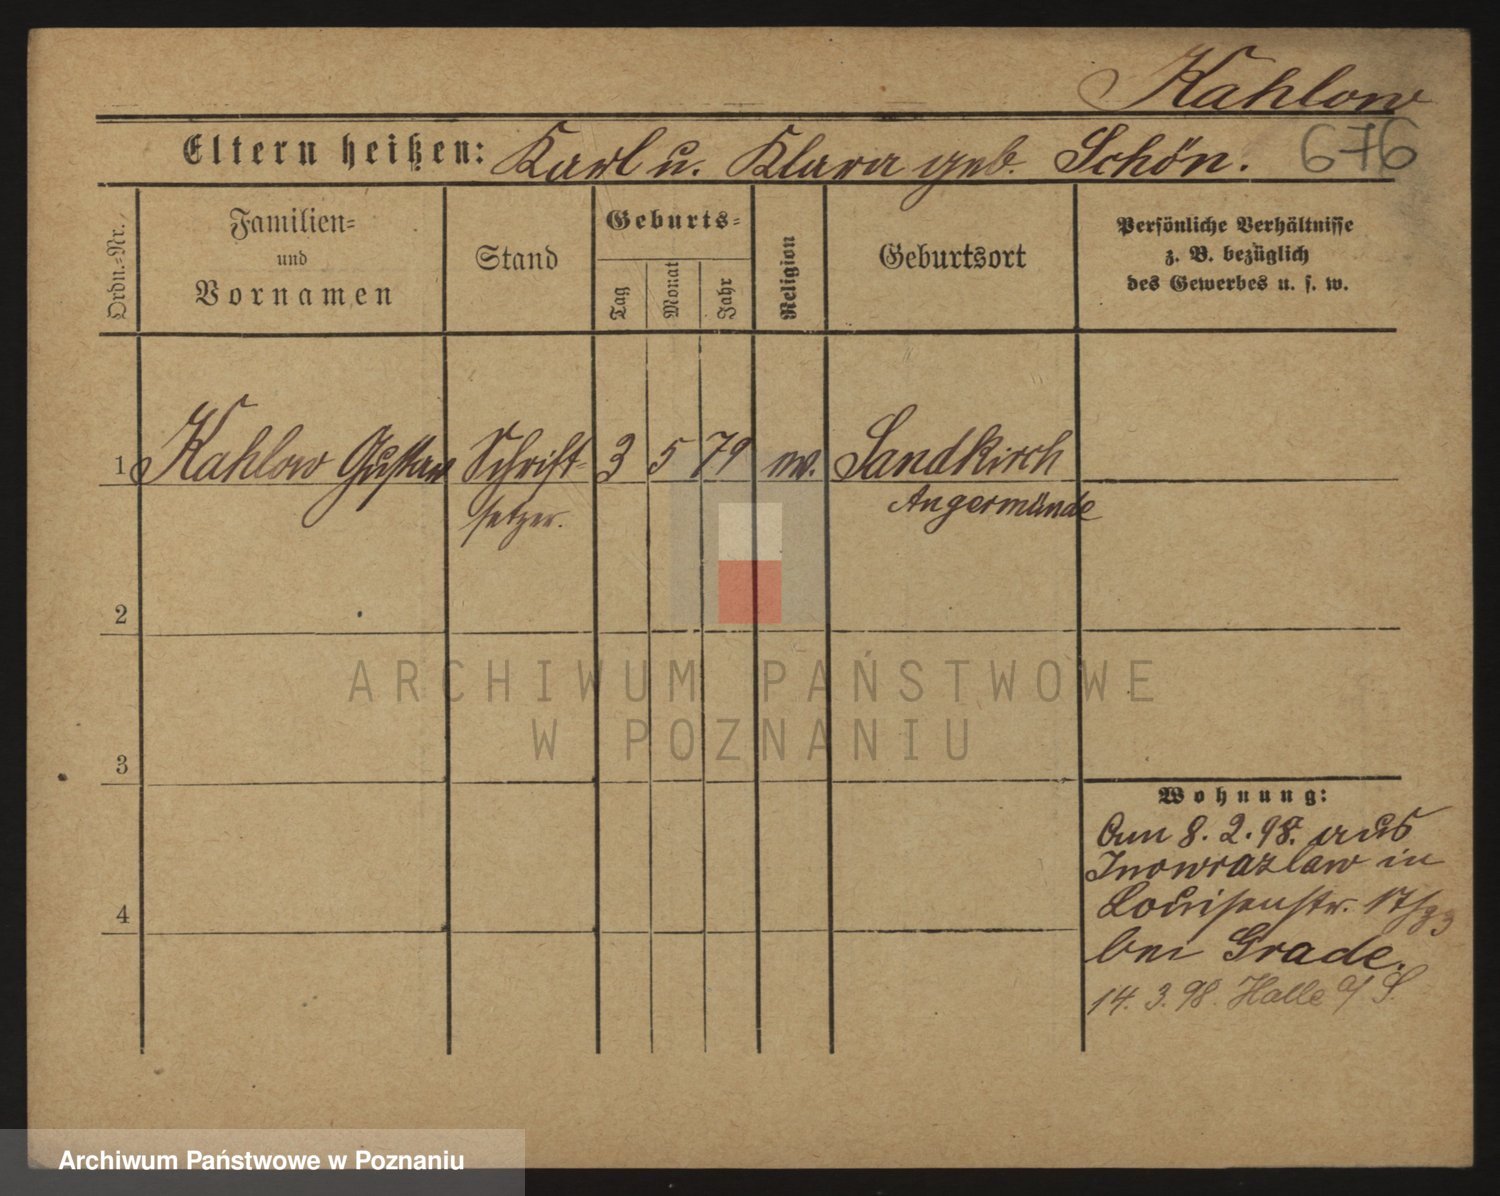 Kahlow
Eltern heißen: Karl u. Klara geb. Schön. 676
Ordn.=Nr.
Familien=
und
Vornamen
Stand
Geburts=
Tag
Monat
Jahr
Religion
Geburtsort
Persönliche Verhältnisse
z. B. bezüglich
des Gewerbes u. s. w.
1 Kahlow Gustav Schrift= 3 5 79 ev. Sandkirch
setzer. Angermünde
2
ARCHIWUM PAŃSTWOWE
W POZNANIU
3
Wohnung:
Am 8. 2. 98. aus
Inowrazlaw in
4
Louisenstr.
bei Grade.
14. 3. 98. Halle a/S.
Archiwum Państwowe w Poznaniu